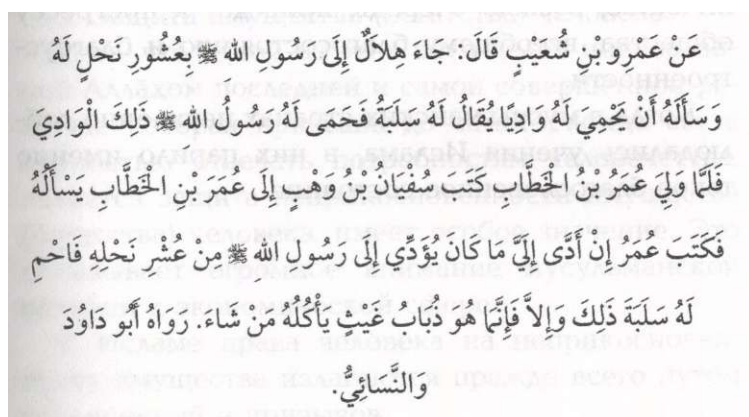 عَنْ عَمْرِو بْنِ شُعَيْبٍ قَالَ: جَاءَ هِلَالٌ إِلَى رَسُولِ اللهِ ﷺ بِعُشُورِ نَحْلٍ لَهُ
وَسَأَلَهُ أَنْ يَحْمِيَ لَهُ وَادِيًا يُقَالُ لَهُ سَلَبَةُ فَحَمَى لَهُ رَسُولُ اللهِ ﷺ ذَلِكَ الْوَادِيَ
فَلَمَّا وَلِيَ عُمَرُ بْنُ الْخَطَّابِ كَتَبَ سُفْيَانُ بْنُ وَهْبٍ إِلَى عُمَرَ بْنِ الْخَطَّابِ يَسْأَلُهُ
فَكَتَبَ عُمَرُ إِنْ أَدَّى إِلَيَّ مَا كَانَ يُؤَدِّي إِلَى رَسُولِ اللهِ ﷺ مِنْ عُشْرِ نَحْلِهِ فَاحْمِ
لَهُ سَلَبَةَ ذَلِكَ وَإِلاَّ فَإِنَّمَا هُوَ ذُبَابُ غَيْثٍ يَأْكُلُهُ مَنْ شَاءَ. رَوَاهُ أَبُو دَاوُدَ
وَالنَّسَائِيُّ.